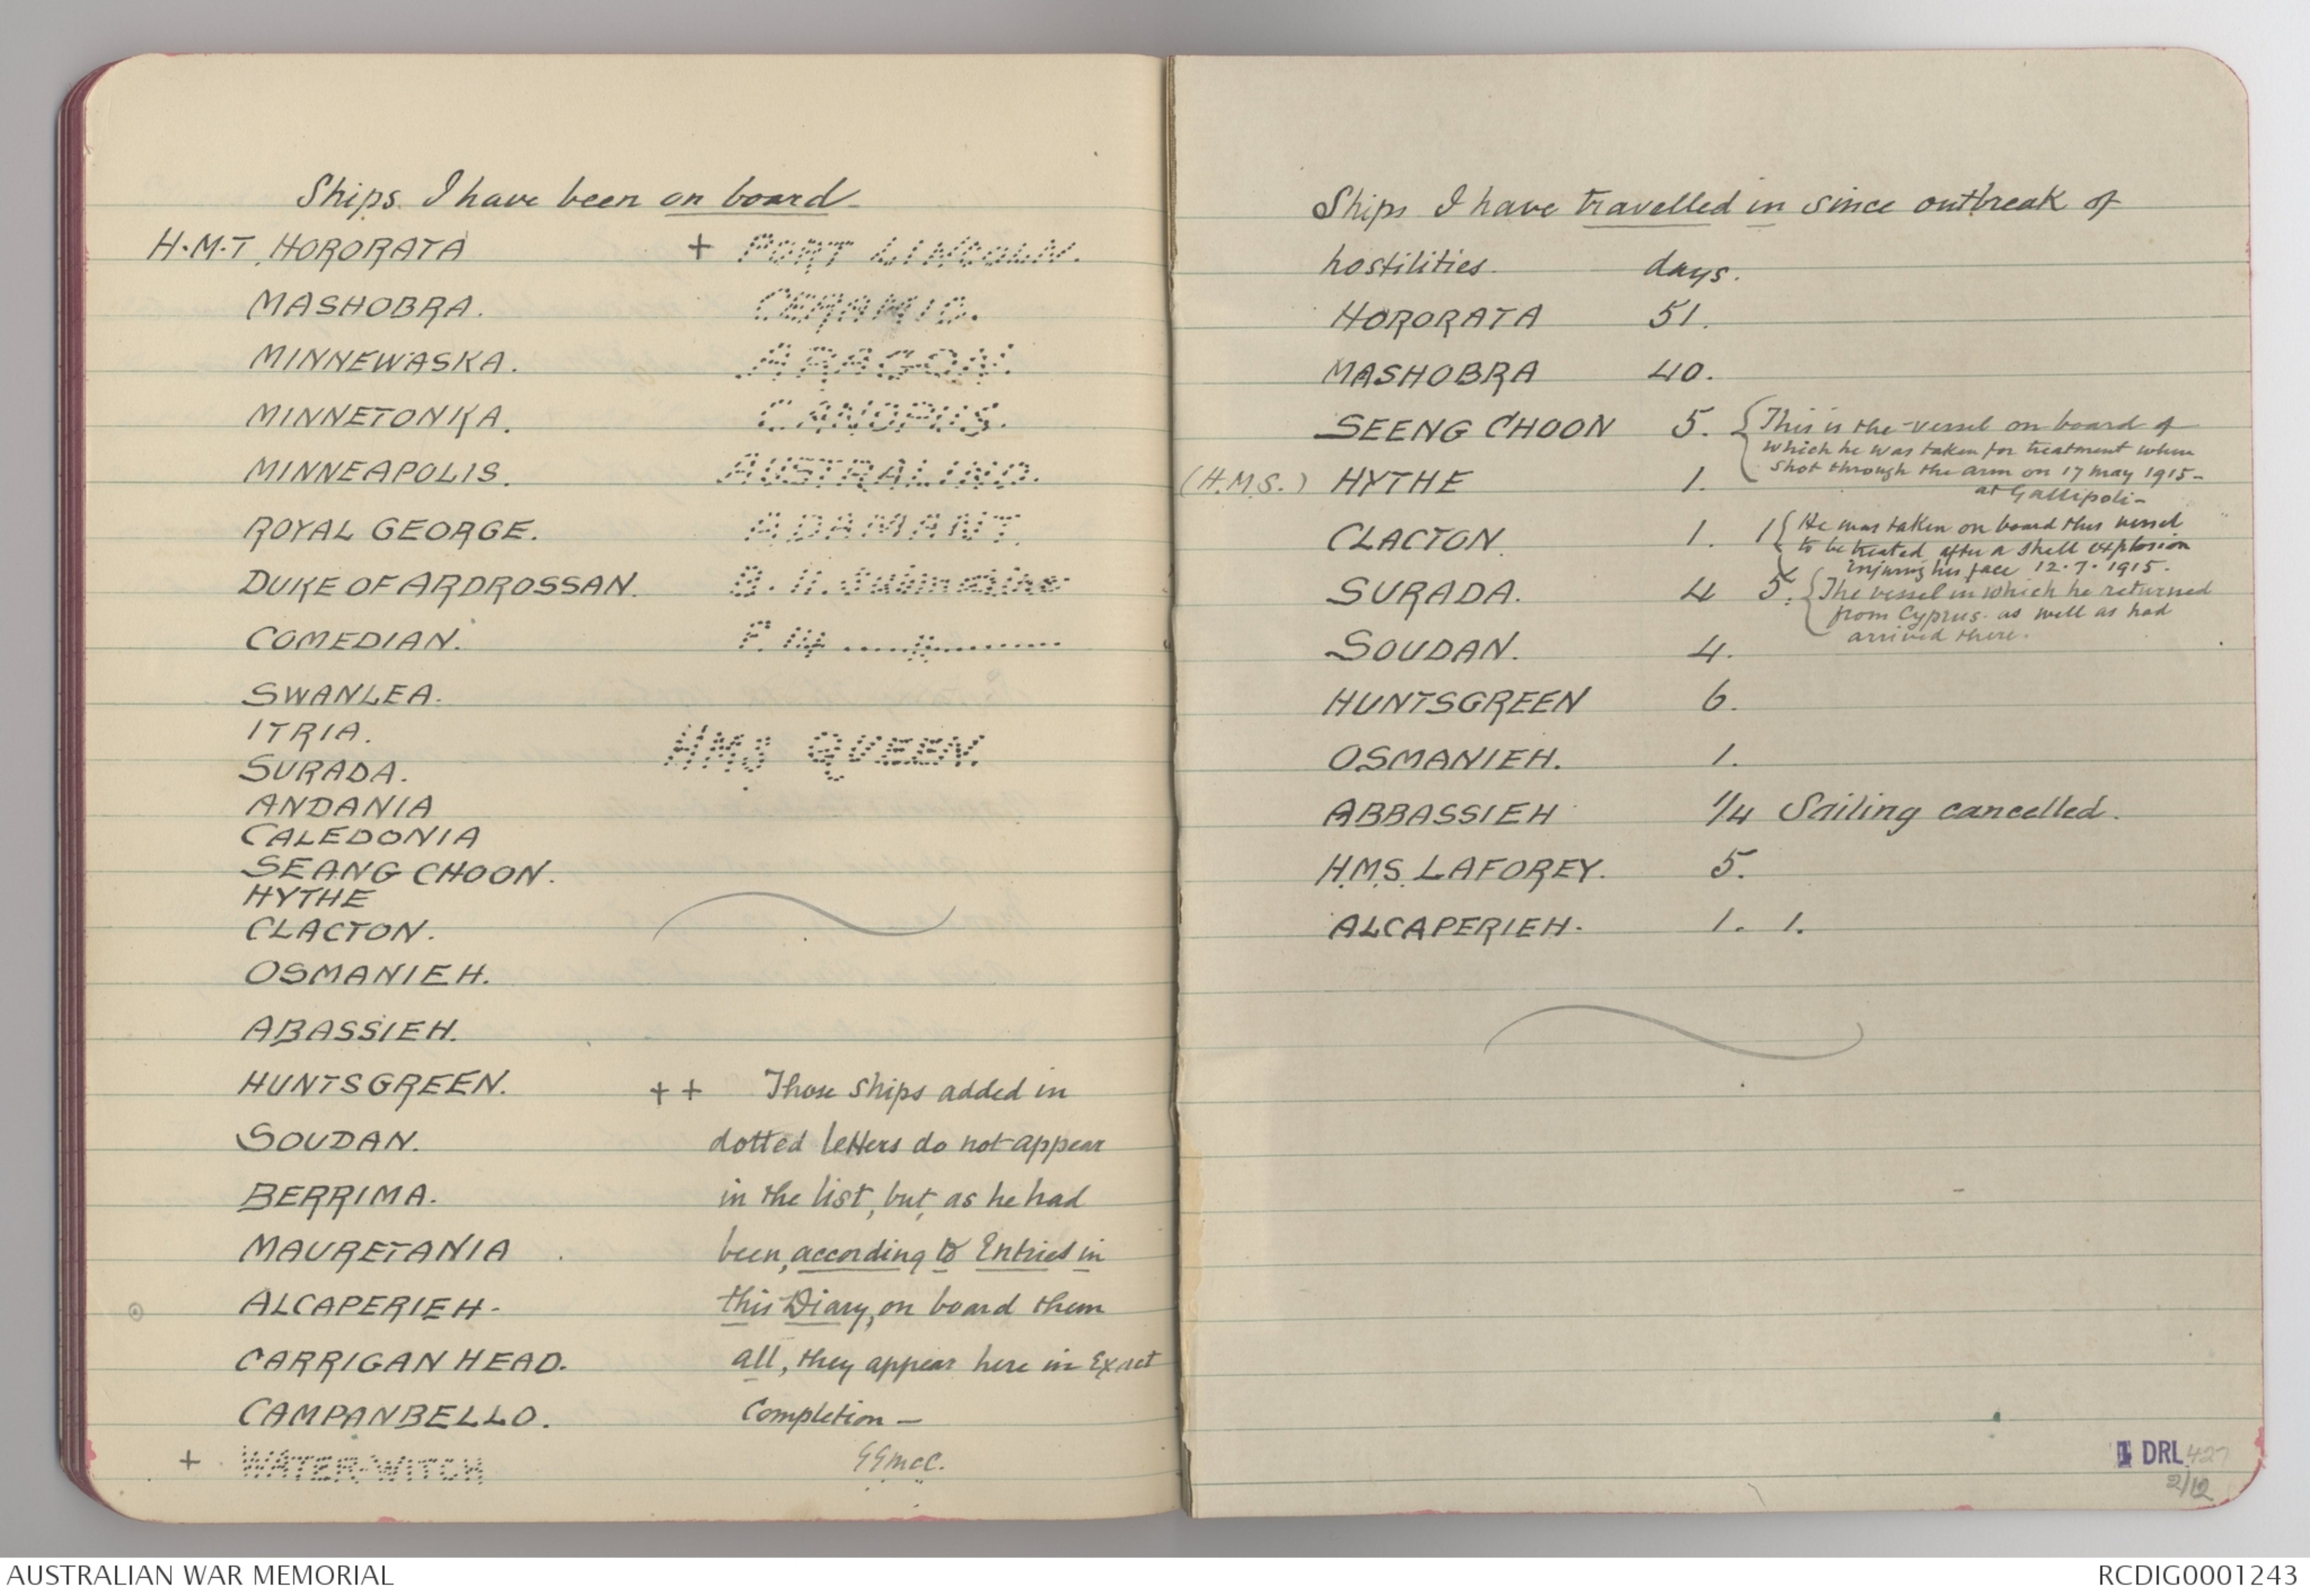 Ships I have been on board
H.M.T. HORORATA
MASHOBRA.
MINNEWASKA.
MINNETONKA.
MINNEAPOLIS.
ROYAL GEORGE.
DUKE OF ARDROSSAN.
COMEDIAN.
SWANLEA.
ITRIA.
SURADA.
ANDANIA
CALEDONIA
SEANG CHOON.
HYTHE
CLACTON.
OSMANIEH.
ABASSIEH.
HUNTSGREEN.
SOUDAN.
BERRIMA.
MAURETANIA.
ALCAPERIEH-
CARRIGAN HEAD.
CAMPANBELLO.
+ WATER-WITCH
+ PORT LINCOLN.
CERAMIC.
ARAGON.
CANOPUS.
AUSTRALIND.
ADAMANT.
B.11. Submarine
E.14 ....."..........
HMS QUEEN.
++ Those ships added in
dotted letters do not appear
in the list, but, as he had
been, according to Entries in
this Diary, on board them
all, they appear here in Exact
Completion —
GGMcC.
Ships I have travelled in since outbreak of
hostilities. days.
HORORATA 51.
MASHOBRA 40.
SEENG CHOON 5. {This is the vessel on board of
which he was taken for treatment when
shot through the arm on 17 may 1915-
at Gallipoli-
(H.M.S.) HYTHE 1.
CLACTON. 1. 1 {He was taken on board this vessel
to be treated after a shell explosion
injuring his face 12.7.1915.
SURADA. 4 5. {The vessel in which he returned
from Cyprus. as well as had
arrived there.
SOUDAN. 4.
HUNTSGREEN 6.
OSMANIEH. 1.
ABBASSIEH 1/4 Sailing cancelled.
H.M.S. LAFOREY. 5.
ALCAPERIEH. 1. 1.
1 DRL 427
2/12
AUSTRALIAN WAR MEMORIAL
RCDIG0001243